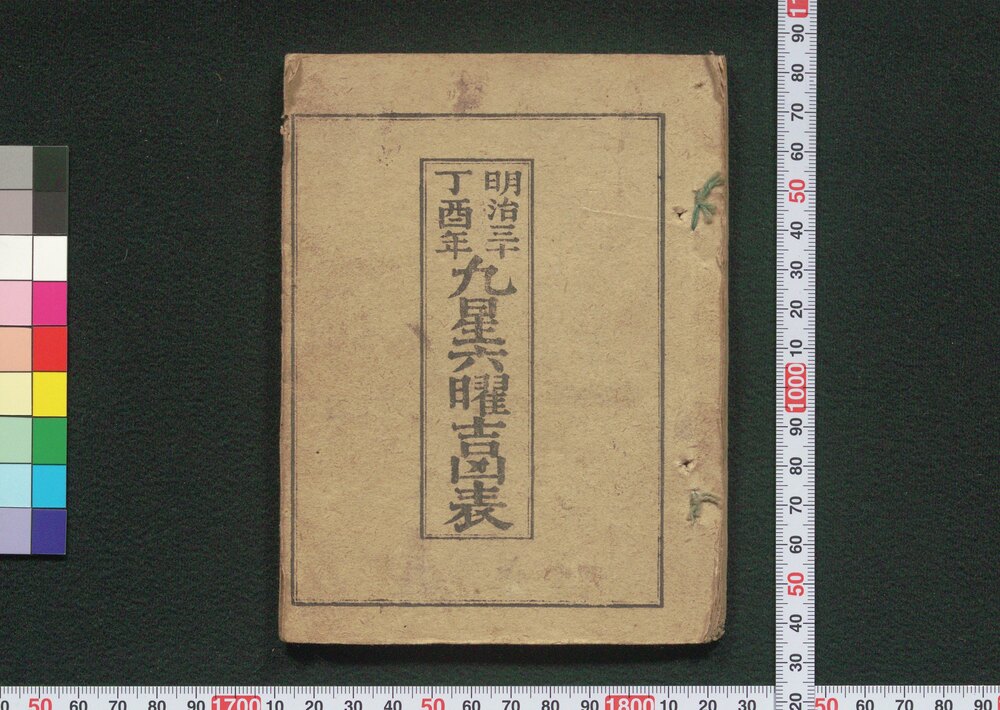 明治三十
丁酉年
九星六曜吉凶表
90
80
70
60
50
40
30
20
10
1000
90
80
70
60
50
40
30
20
50 60 70 80 90 1700 10 20 30 40 50 60 70 80 90 1800 10 20 30 50 60 70 80 90